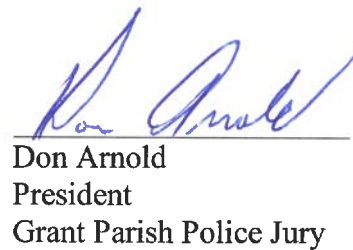 Don Arnold
Don Arnold
President
Grant Parish Police Jury